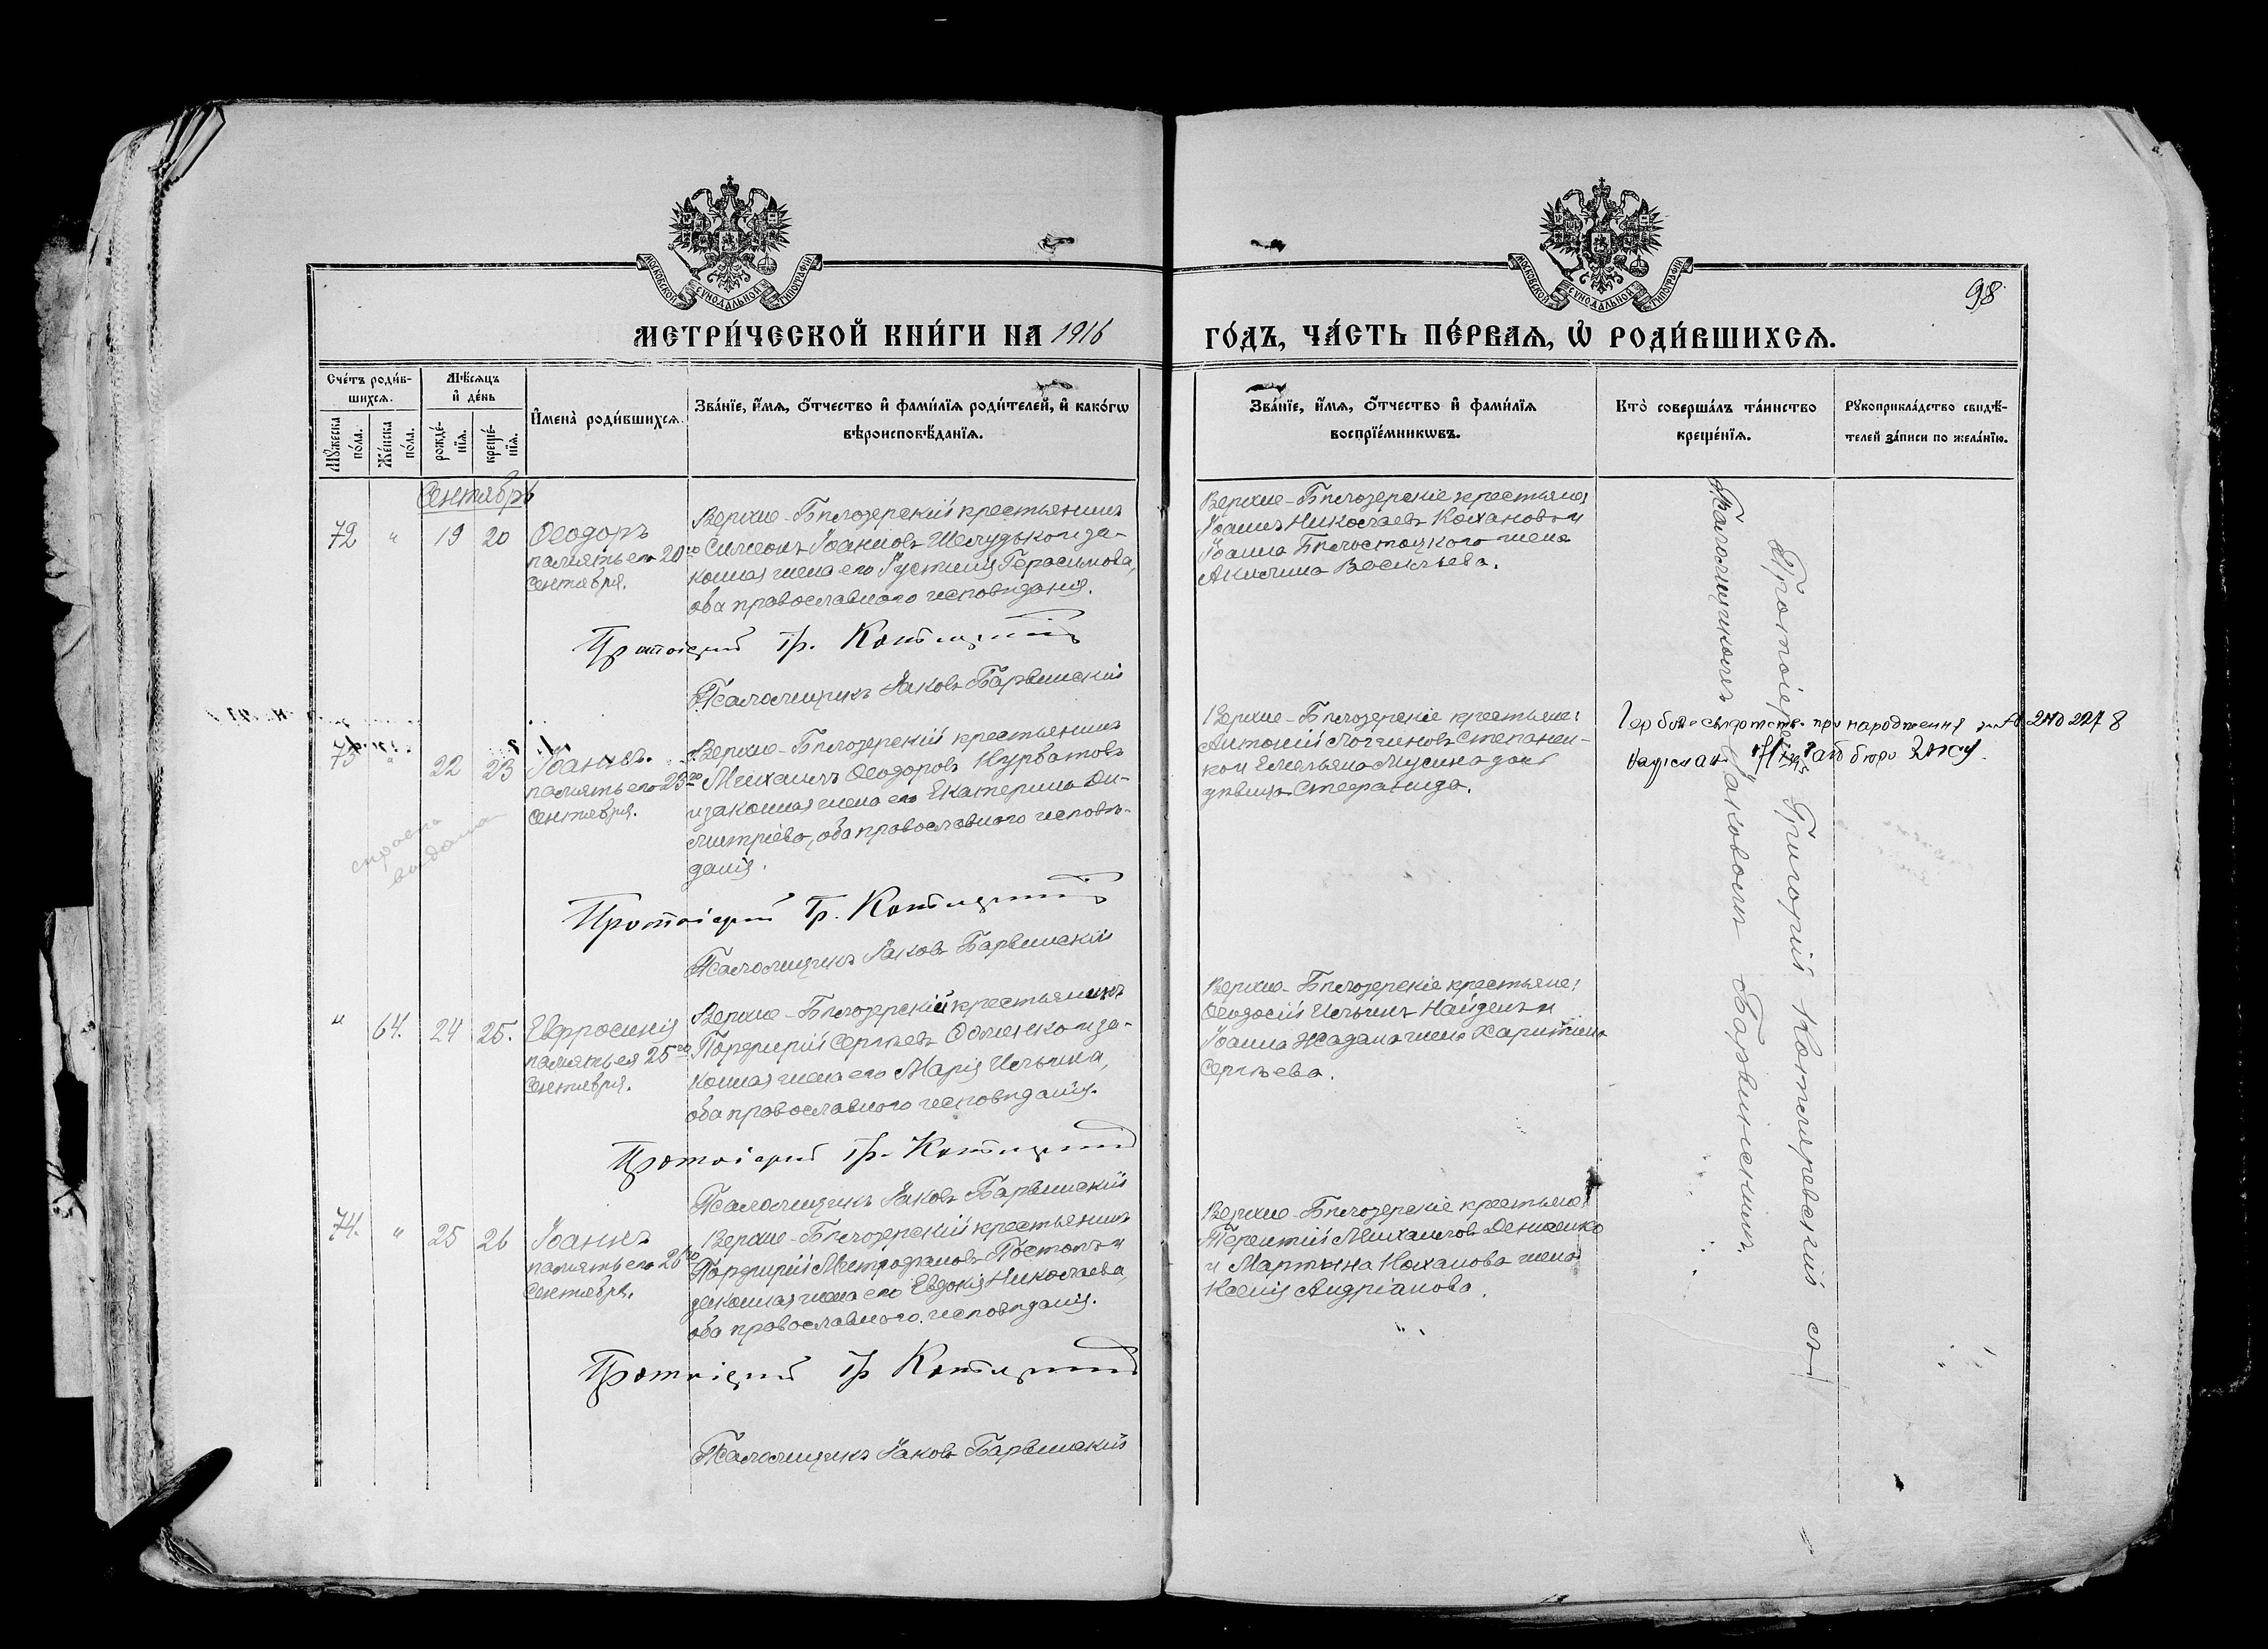 МОСКОВСКОЙ СѴНОДАЛЬНОЙ ТИПОГРАФІИ
МОСКОВСКОЙ СѴНОДАЛЬНОЙ ТИПОГРАФІИ
98
МЕТРИ́ЧЕСКОЙ КНИ́ГИ НА 1916
ГО́ДЪ, ЧА́СТЬ ПЕ́РВАѦ, Ѡ҆ РОДИ́ВШИХСѦ.
Сче́тъ роди́в-
шихсѧ.
Мѣ́сѧцъ
и҆ де́нь
Мꙋ́жеска
по́ла.
Же́нска
по́ла.
рожде́-
нїѧ.
креще́-
нїѧ.
И҆мена̀ роди́вшихсѧ.
Зва́нїе, и҆́мѧ, ѻ҆́тчество и҆ фами́лїѧ роди́телей, и҆ како́гѡ
вѣроисповѣ́данїѧ.
Зва́нїе, и҆́мѧ, ѻ҆́тчество и҆ фами́лїѧ
воспрїе́мникѡвъ.
Кто̀ соверша́лъ та́инство
креще́нїѧ.
Рꙋкоприкла́дство свидѣ́-
телей за́писи по жела́нїю.
Сентябрь
72 " 19 20
Ѳеодоръ
память его 20го
сентября.
Верхне-Бѣлозерскій крестьянинъ
Симеонъ Іоанновъ Шелудько и за-
конная жена его Іустинія Герасимова,
оба православнаго исповѣданія.
Протоіерей Гр. Котляревскій
Псаломщикъ Іаковъ Барвинскій
Верхне-Бѣлозерскіе крестьяне:
Іоаннъ Николаевъ Кохановъ и
Іоанна Бѣлостоцкого жена
Акилина Васильева.
73 " 22 23
Іоаннъ.
память его 23го
сентября.
Верхне-Бѣлозерскій крестьянинъ
Михаилъ Ѳеодоровъ Курбатовъ
и законная жена его Екатерина Ди-
митріева, оба православнаго исповѣ-
данія.
Протоіерей Гр. Котляревскій
Псаломщикъ Іаковъ Барвинскій
Верхне-Бѣлозерскіе крестьяне:
Антоній Логгиновъ Степанен-
ко и Емельяна Мусина дочь
дѣвица Стефанида.
справка
выдана
" 64. 24 25.
Евфросинія
память ея 25го
сентября.
Верхне-Бѣлозерскій крестьянинъ
Порфирій Сергѣевъ и за-
конная жена его Марія Ильина,
оба православнаго исповѣданія.
Протоіерей Гр. Котляревскій
Псаломщикъ Іаковъ Барвинскій
Верхне-Бѣлозерскіе крестьяне:
Ѳеодосій Ильинъ Найденъ и
Іоанна Жадана жена Харитина
Сергѣева.
74. " 25 26
Іоаннъ
память его 26го
сентября.
Верхне-Бѣлозерскій крестьянинъ
Порфирій Митрофановъ Постолъ и
законная жена его Евдокія Николаева,
оба православнаго исповѣданія.
Протоіерей Гр. Котляревскій
Псаломщикъ Іаковъ Барвинскій
Верхне-Бѣлозерскіе крестьяне:
Терентій Михаиловъ Денисенко
и Мартина Коханова жена
Ксенія Андріанова.
Протоіерей Григорій Котляревскій съ
Псаломщикомъ Іаковомъ Барвинскимъ.